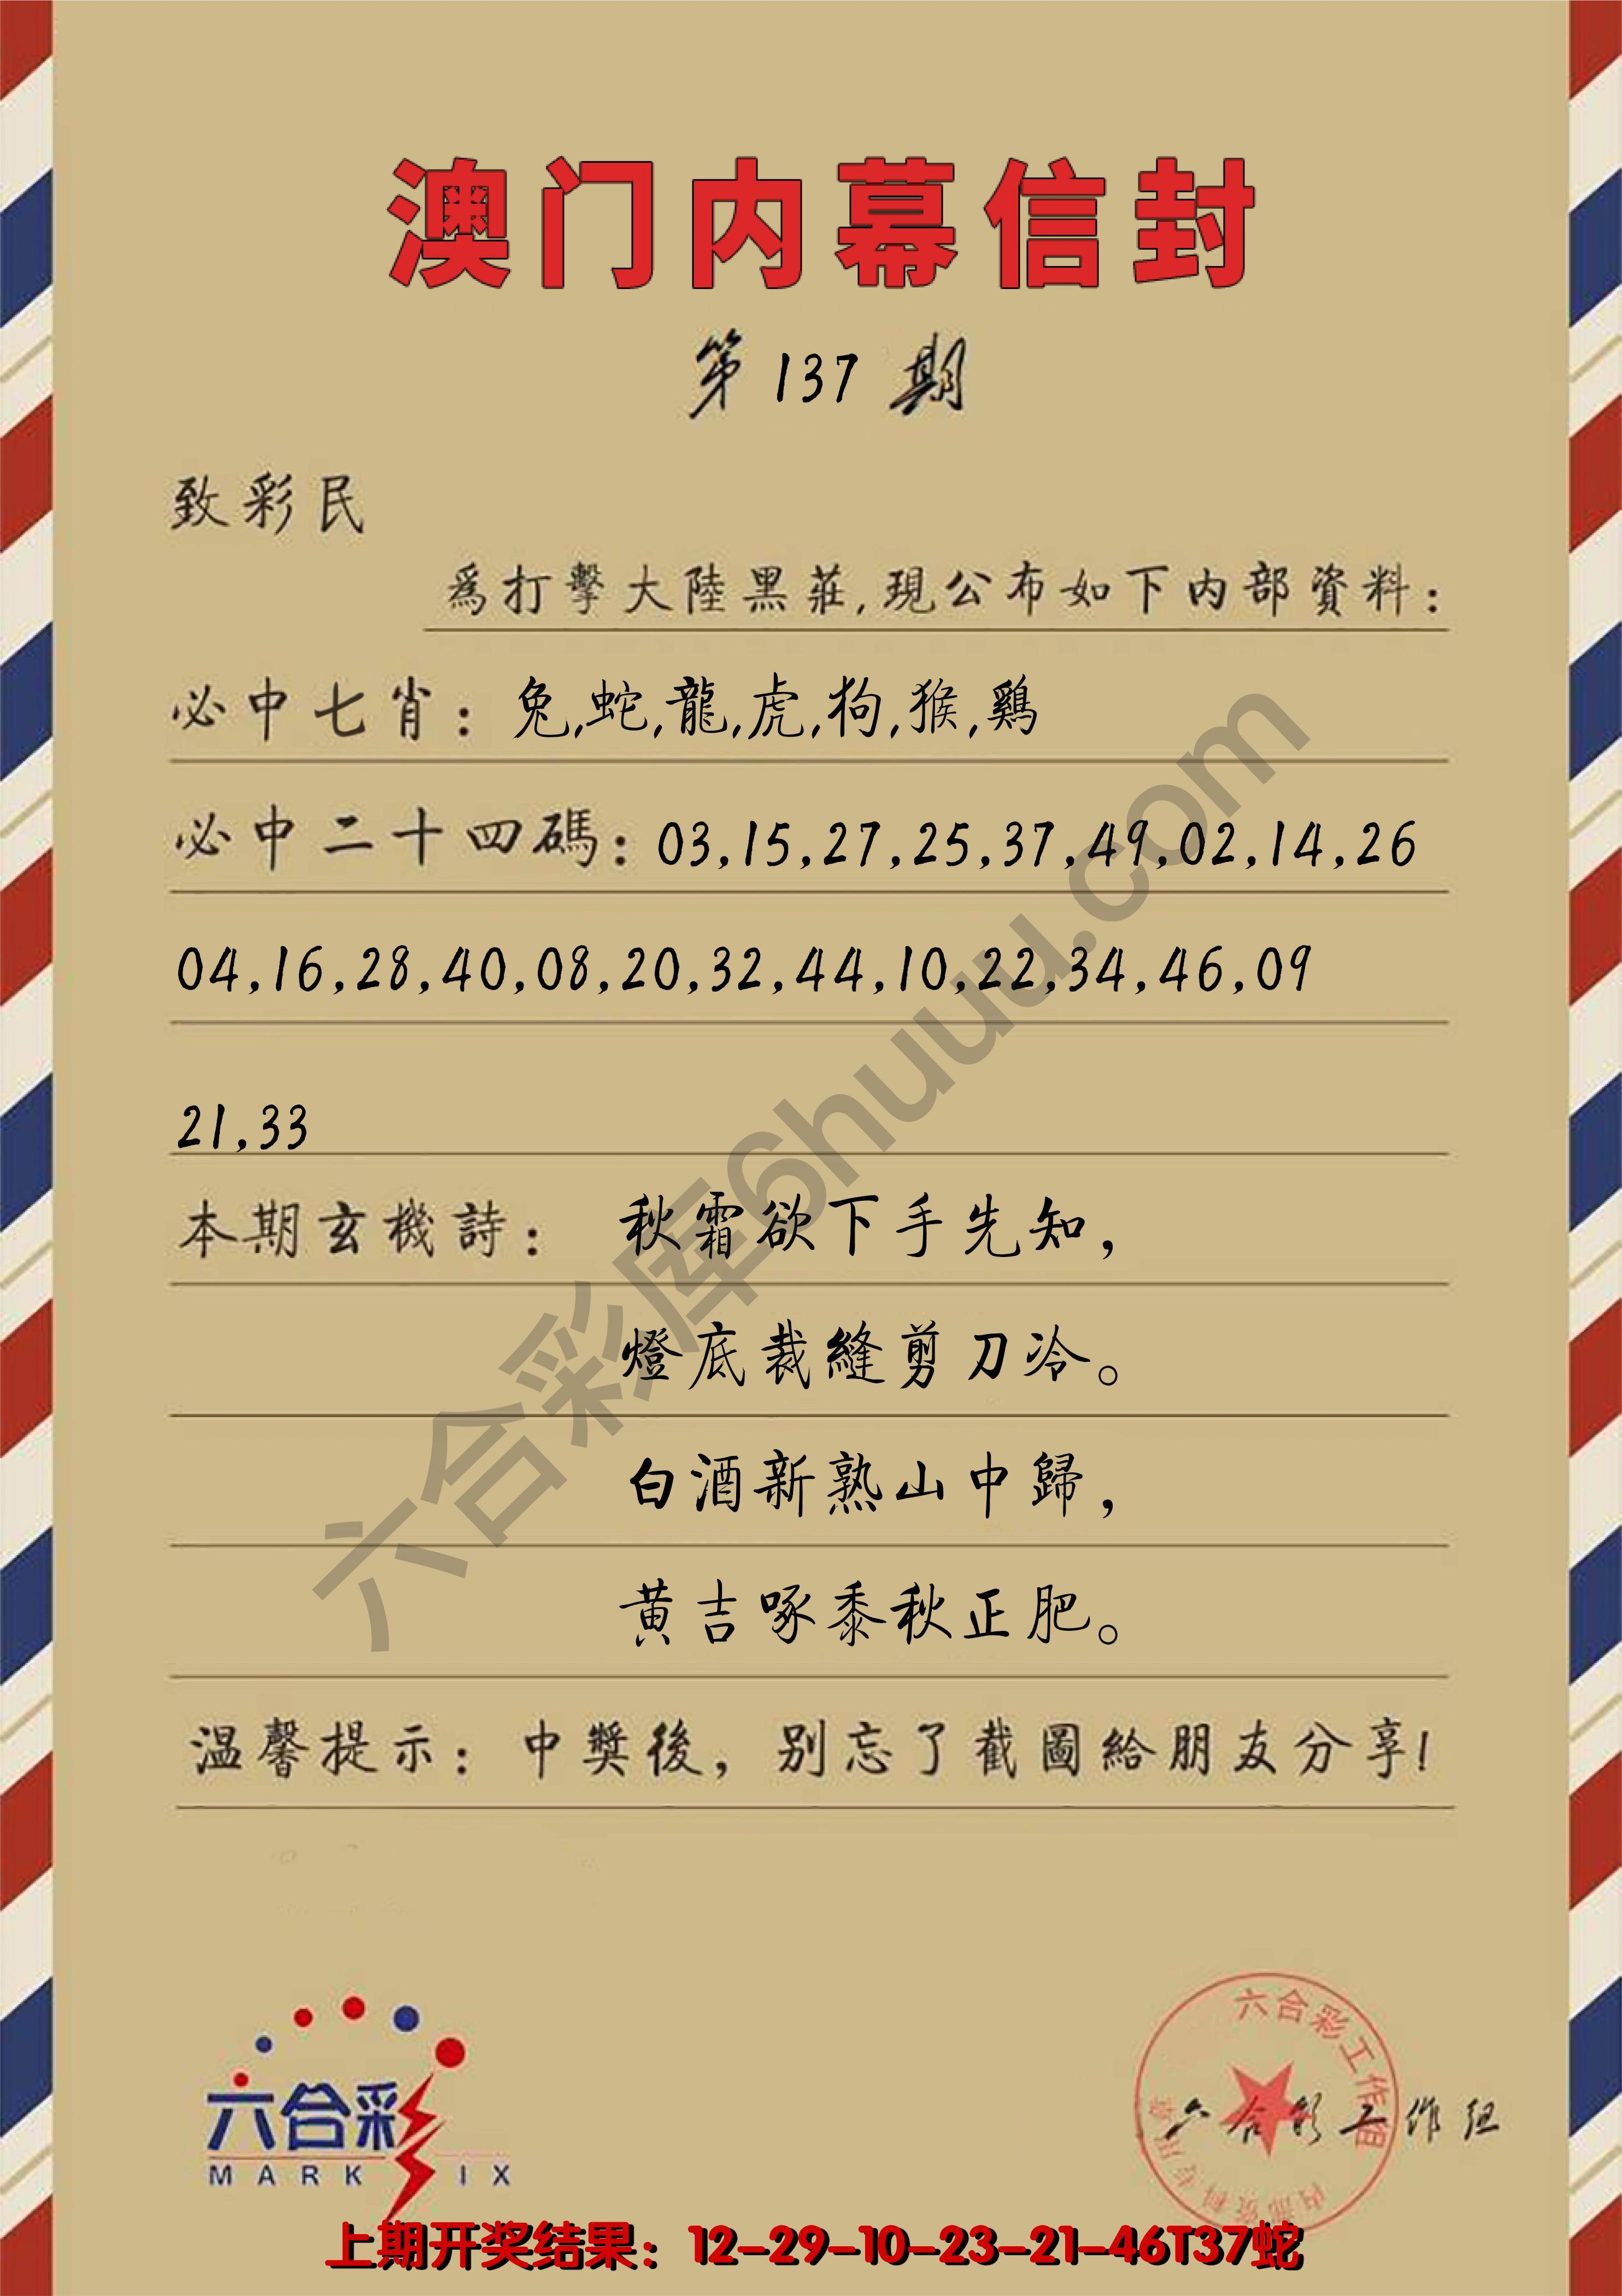 澳门内幕信封
第 137 期
致彩民
為打擊大陸黑莊,現公布如下内部資料:
必中七肖: 兔,蛇,龍,虎,狗,猴,鷄
必中二十四碼: 03,15,27,25,37,49,02,14,26
04,16,28,40,08,20,32,44,10,22,34,46,09
21,33
本期玄機詩: 秋霜欲下手先知,
燈底裁縫剪刀冷。
白酒新熟山中歸,
黄吉啄黍秋正肥。
温馨提示: 中獎後, 别忘了截圖給朋友分享!
六合彩库6huuu.com
六合彩
MARK IX
六合彩工作组
内部资料专用章
六合彩工作组
上期开奖结果: 12-29-10-23-21-46T37蛇